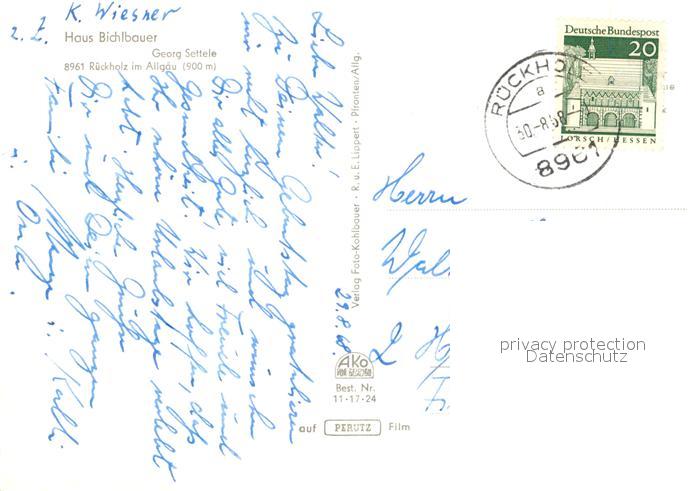 K. Wiesner
z. Z. Haus Bichlbauer
Georg Settele
8961 Rückholz im Allgäu (900 m)
Zu Deinem Geburtstag gratulieren
wir recht herzlich und wünschen
Dir alles Gute, viel Freude und
Gesundheit. Wir hoffen, daß
Ihr schöne Urlaubstage verlebt
habt. Herzliche Grüße
Dir und Deiner ganzen
Familie
u. Oma.
29.8.68.
Verlag Foto-Kohlbauer · R. u. E. Lippert · Pfronten/Allg.
AKO
Best. Nr.
11·17·24
auf PERUTZ Film
Deutsche Bundespost
20
LORSCH/HESSEN
RÜCKHO
a
30.-8.68
8961
Herrn
privacy protection
Datenschutz